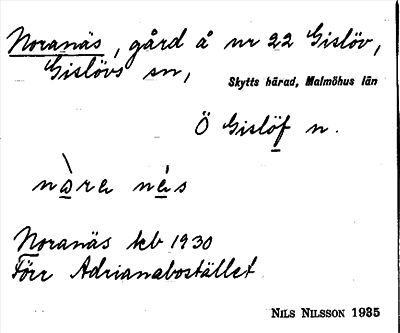 Noranäs, gård å nr 22 Gislöv,
Gislövs sn,
Skytts härad, Malmöhus län
Ö Gislöf n.
nòra nés
Noranäs kb 1930
Förr Adrianabostället
NILS NILSSON 1935